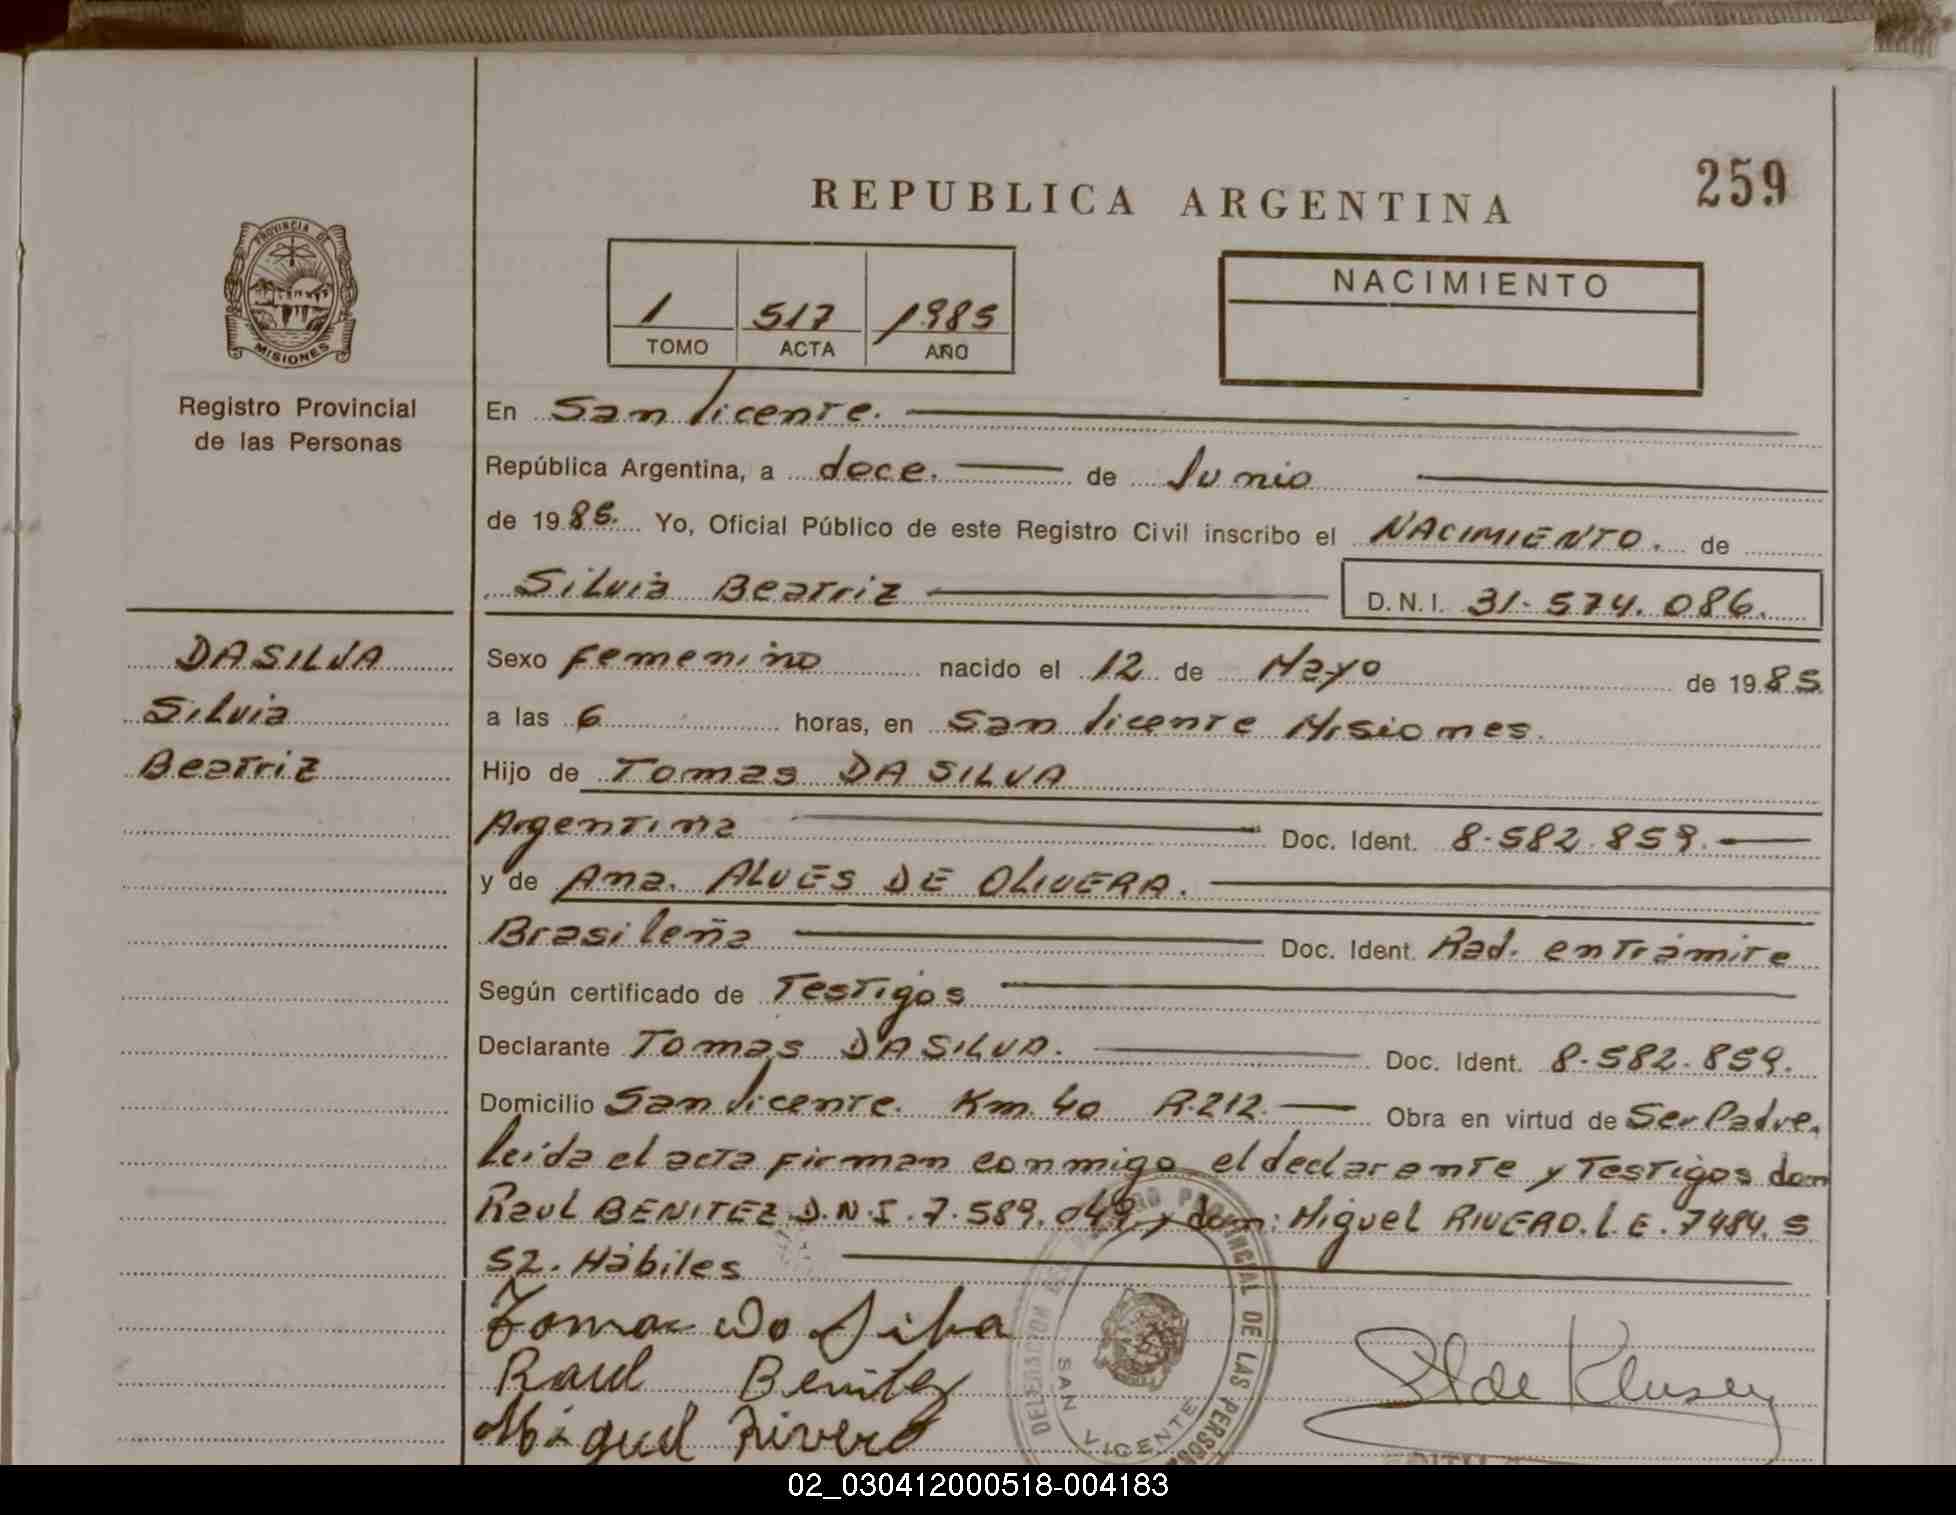 259
REPUBLICA ARGENTINA
PROVINCIA DE
MISIONES
1 517 1985
TOMO ACTA AÑO
NACIMIENTO
Registro Provincial
de las Personas
En San Vicente.
República Argentina, a doce. de Junio
de 1985. Yo, Oficial Público de este Registro Civil inscribo el NACIMIENTO. de
Silvia Beatriz D.N.I. 31.574.086.
DASILVA
Silvia
Beatriz
Sexo femenino nacido el 12 de Mayo de 1985
a las 6 horas, en San Vicente Misiones.
Hijo de Tomas DA SILVA
Argentina Doc. Ident. 8.582.859.
y de Ana. ALVES DE OLIVERA.
Brasileña Doc. Ident. Rad. en Trámite
Según certificado de Testigos
Declarante Tomas DASILVA. Doc. Ident. 8.582.859.
Domicilio San Vicente. Km. 40 R.212. Obra en virtud de Ser Padre.
leida el acta firman conmigo el declarante y Testigos don
Raul BENITEZ D.N.I. 7.589.049 y don: Miguel RIVERO. L.E. 7484.5
52. Hábiles
Tomas Do Silva
Raul Benitez
Miguel Rivero
PROVINCIAL DE LAS PERSO
SAN VICENTE
02_030412000518-004183